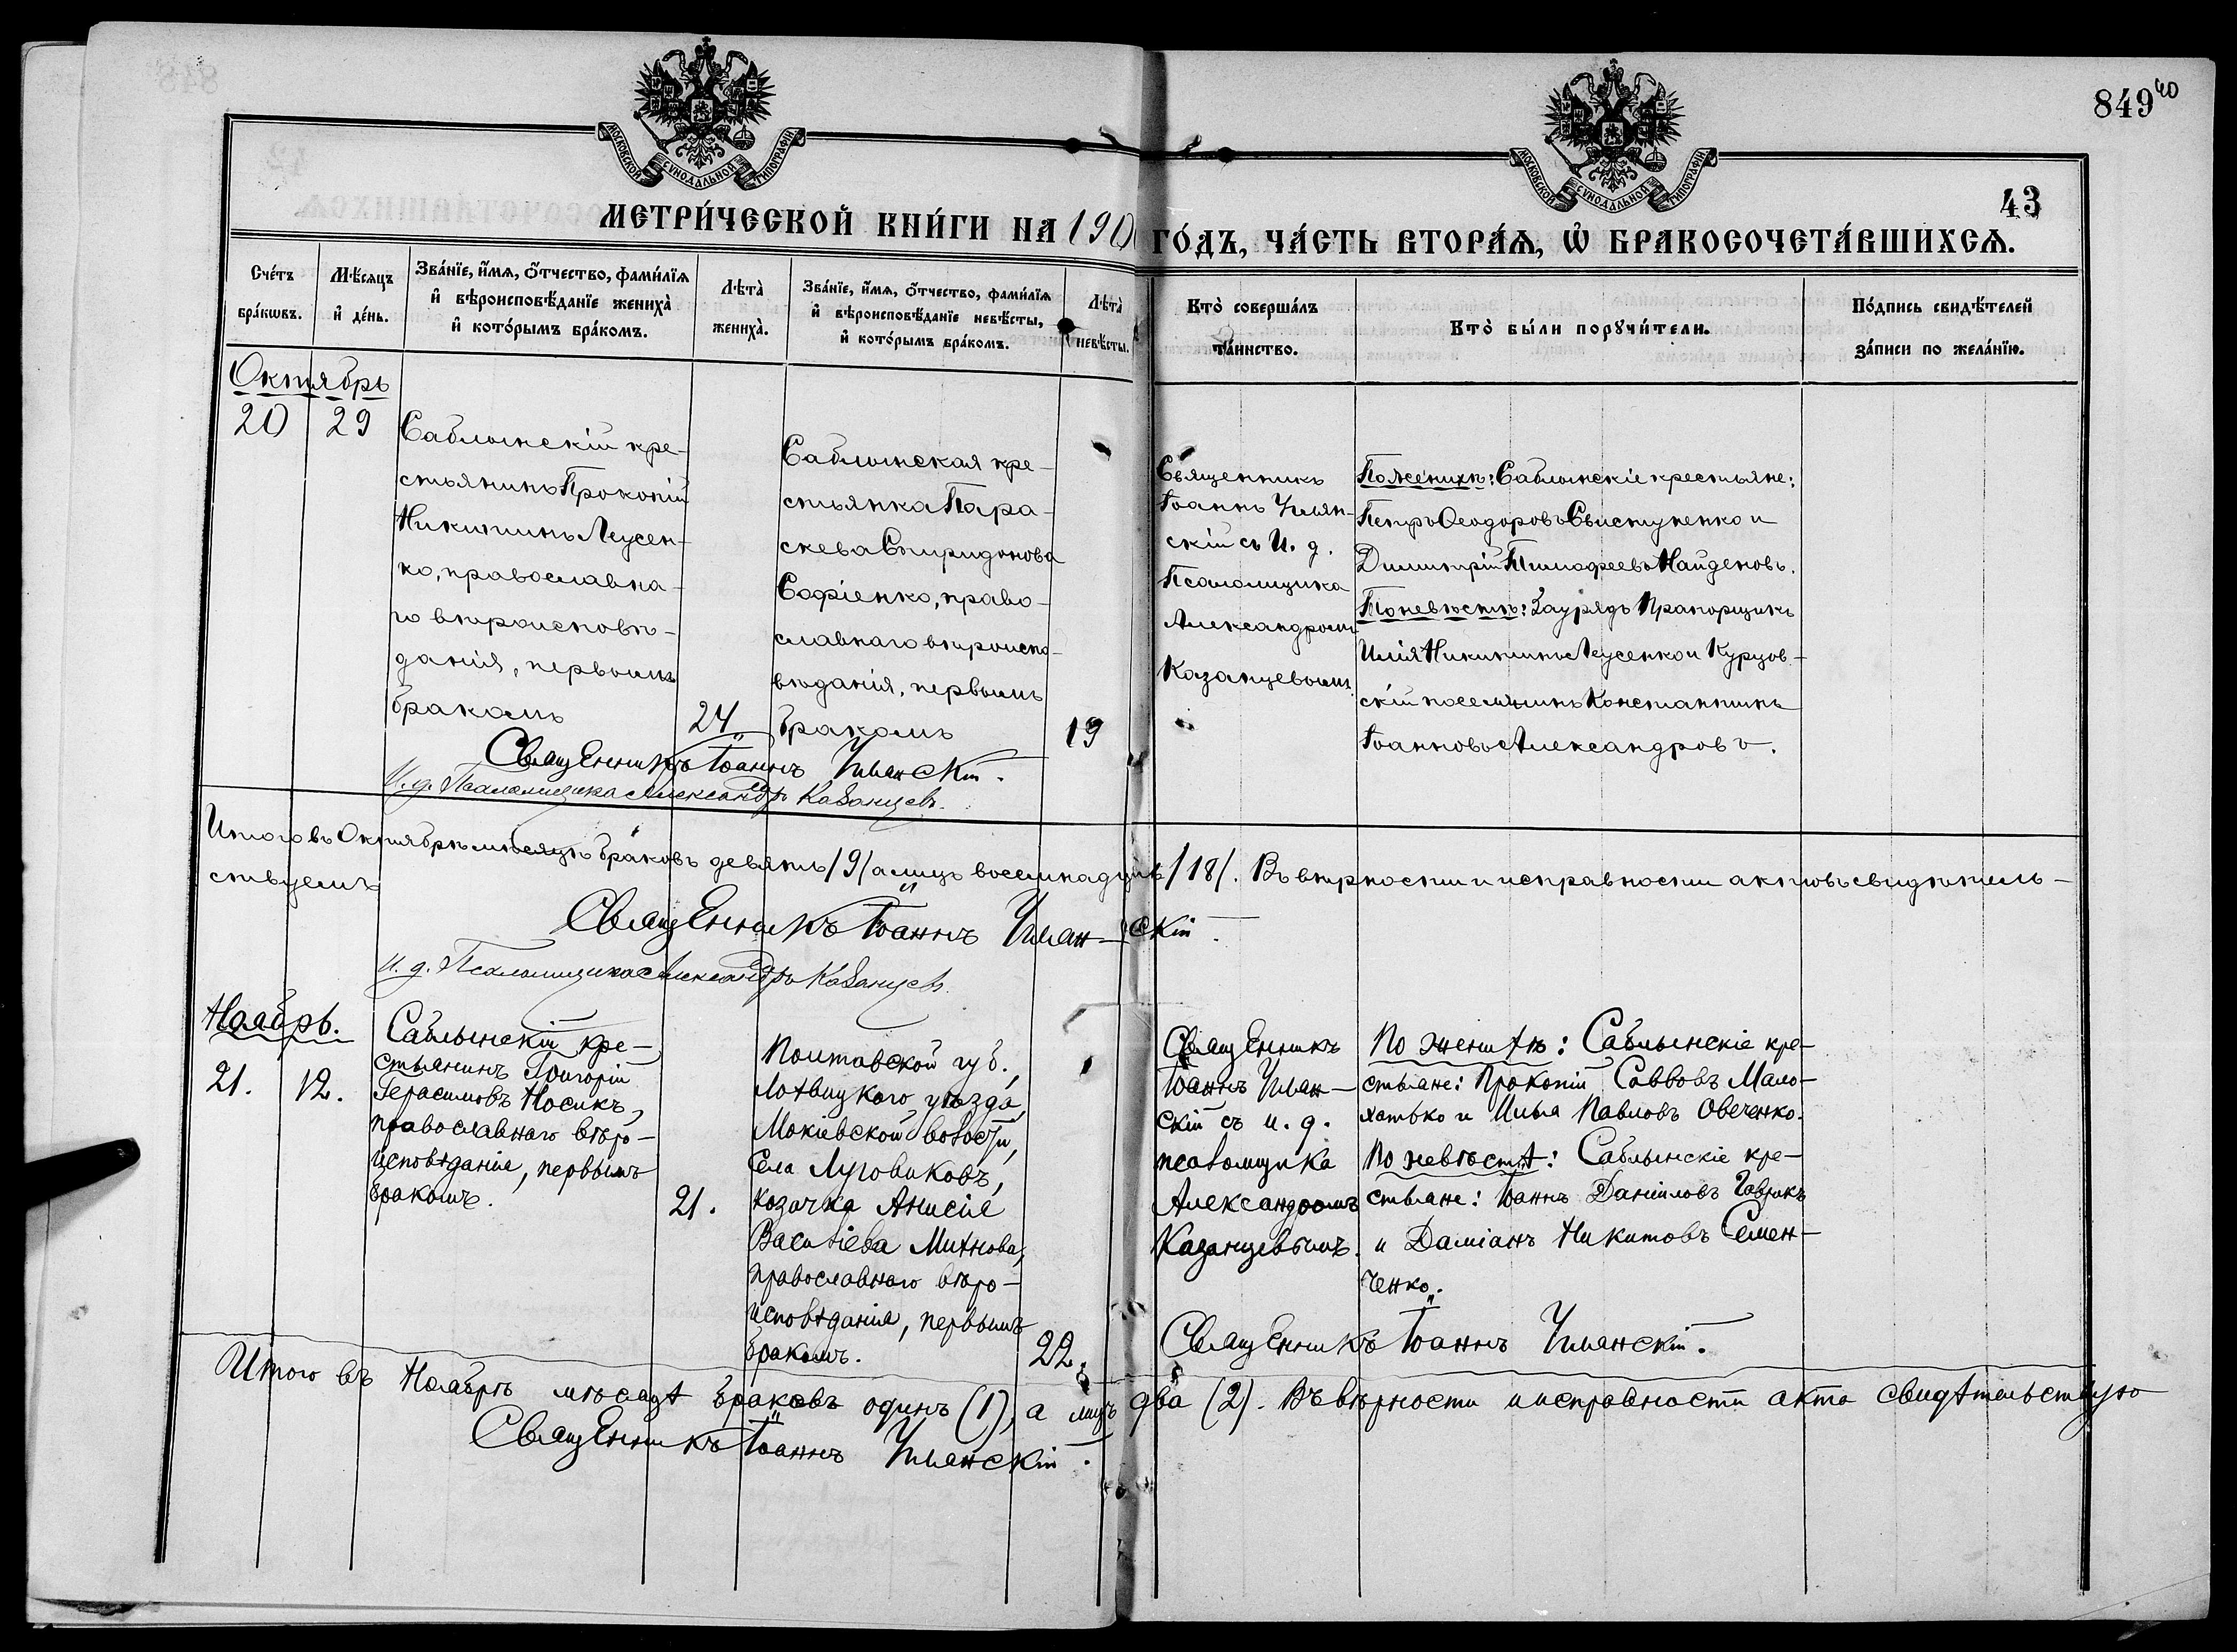 849 40
43
МОСКОВСКОЙ СѴНОДАЛЬНОЙ ТИПОГРАФІИ
МОСКОВСКОЙ СѴНОДАЛЬНОЙ ТИПОГРАФІИ
МЕТРИ́ЧЕСКОЙ КНИ́ГИ НА 1910 ГО́ДЪ, ЧА́СТЬ ВТОРА́Ѧ, Ѡ БРАКОСОЧЕТА́ВШИХСѦ.
Сче́тъ
бра́кѡвъ.
Мѣ́сѧцъ
и҆ де́нь.
Зва́нїе, и҆́мѧ, о҆́тчество, фами́лїѧ
и҆ вѣроисповѣ́данїе жениха̀
и҆ кото́рымъ бра́комъ.
Лѣта̀
жениха̀.
Зва́нїе, и҆́мѧ, о҆́тчество, фами́лїѧ
и҆ вѣроисповѣ́данїе невѣ́сты,
и҆ кото́рымъ бра́комъ.
Лѣта̀
невѣ́сты.
Кто̀ соверша́лъ
та́инство.
Кто̀ бы́ли порꙋчи́тели.
По́дпись свидѣ́телей
за́писи по жела́нїю.
Октябрь
20
29
Саблынскій кре-
стьянинъ Прокопій
Никитинъ Леусен-
ко, православна-
го вѣроисповѣ-
данія, первымъ
бракомъ
24
Саблынская кре-
стьянка Пара-
скева Спиридонова
Софіенко, право-
славнаго вѣроиспо-
вѣданія, первымъ
бракомъ
19
Священникъ
Іоаннъ Улян-
скій съ И. д.
Псаломщика
Александромъ
Казанцевымъ.
По женихѣ: Саблынскіе крестьяне:
Петръ Ѳеодоровъ Свистуненко и
Димитрій Тимоѳеевъ Найденовъ.
По невѣстѣ: Заурядъ Прапорщикъ
Илія Никитинъ Леусенко и Курцов-
скій поселянинъ Константинъ
Іоанновъ Александровъ.
Священникъ Іоаннъ Улянскій.
И. д. Псаломщика Александръ Казанцевъ.
Итого въ Октябрѣ мѣсяцѣ браковъ девять /9/ а лицъ восемнадцать /18/. Въ вѣрности и исправности актовъ свидѣтель-
ствуемъ
Священникъ Іоаннъ Улянскій.
И. д. Псаломщика Александръ Казанцевъ.
Ноябрь.
21.
12.
Саблынскій кре-
стьянинъ Григорій
Герасимовъ Носикъ,
православнаго вѣро-
исповѣданія, первымъ
бракомъ.
21.
Полтавской губ.,
Лохвицкого уѣзда,
Мокіевской волости,
села Луговиковъ,
козачка Анисія
Василіева Михнова,
православнаго вѣро-
исповѣданія, первымъ
бракомъ.
22.
Священникъ
Іоаннъ Улян-
скій съ и. д.
псаломщика
Александромъ
Казанцевымъ.
По женихѣ: Саблынскіе кре-
стьяне: Прокопій Саввовъ Мало-
хатько и Илья Павловъ Овеченко.
По невѣстѣ: Саблынскіе кре-
стьяне: Іоаннъ Даниловъ Гаврикъ
и Даміанъ Никитовъ Семен-
ченко.
Священникъ Іоаннъ Улянскій.
Итого въ Ноябрѣ мѣсяцѣ браковъ одинъ (1), а лицъ два (2). Въ вѣрности и исправности акта свидѣтельствую
Священникъ Іоаннъ Улянскій.